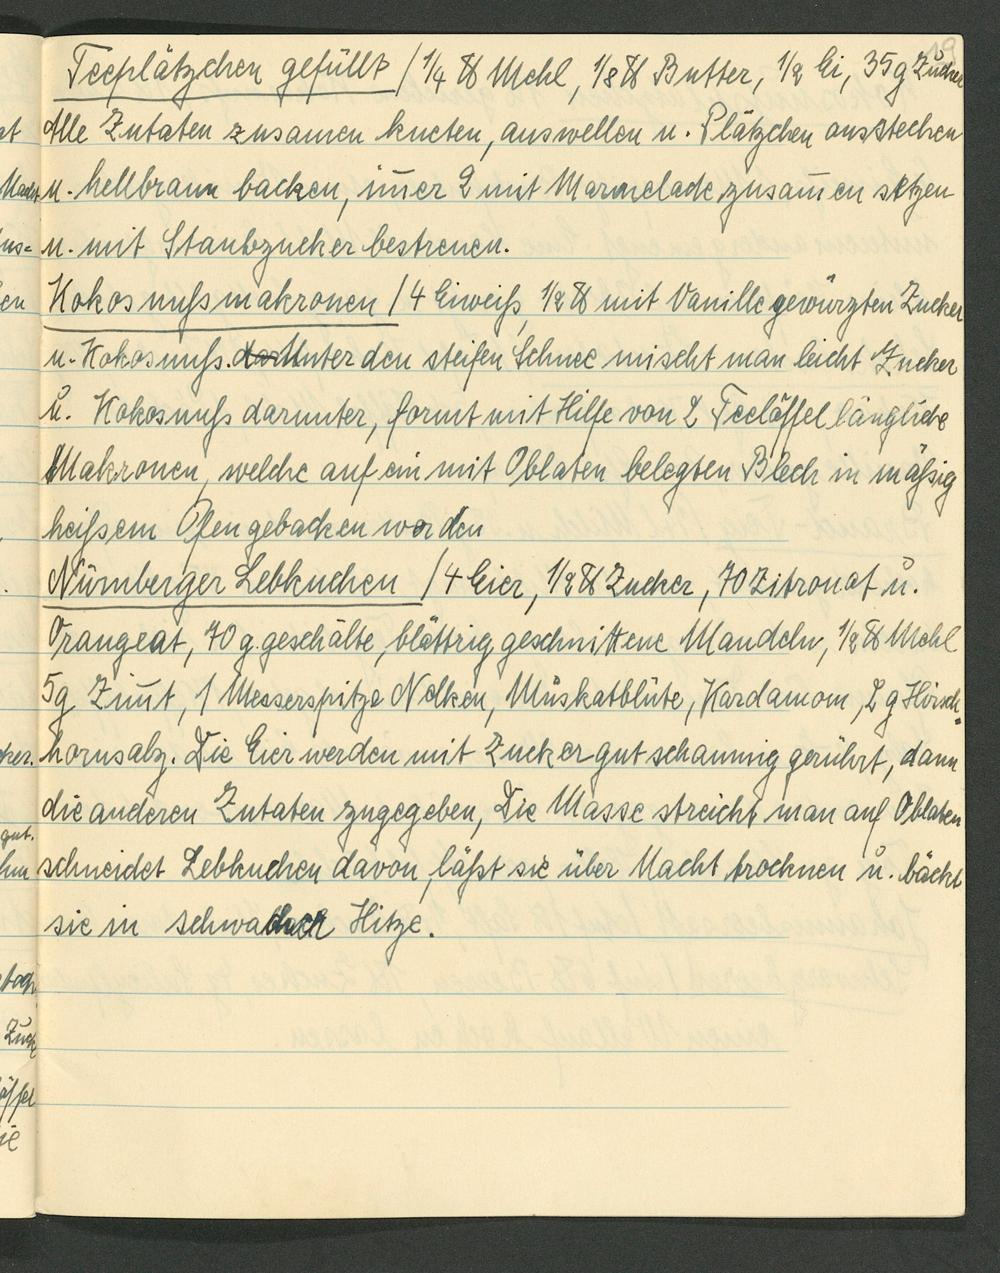 19
Teeplätzchen gefüllt / 1/4 ℔ Mehl, 1/8 ℔ Butter, 1/2 Ei, 35g Zucker
Alle Zutaten zusamen kneten, auswellen u. Plätzchen ausstechen
u. hellbraun backen, im̄er 2 mit Marmelade zusam̄en setzen
u. mit Staubzucker bestreuen.
Kokosnußmakronen / 4 Eiweiß, 1/2 ℔ mit Vanille gewürzten Zucker
u. Kokosnuß. Unter den steifen Schnee mischt man leicht Zucker
u. Kokosnuß darunter, formt mit Hilfe von 2 Teelöffel längliche
Makronen, welche auf ein mit Oblaten belegten Blech in mäßig
heißem Ofen gebacken werden
Nürnberger Lebkuchen / 4 Eier, 1/2 ℔ Zucker, 70 Zitronat u.
Orangeat, 70 g. geschälte, blättrig geschnittene Mandeln, 1/2 ℔ Mehl
5g Zim̄t, 1 Messerspitze Nelken, Muskatblüte, Kardamom, 2 g Hirsch-
hornsalz. Die Eier werden mit Zucker gut schaumig gerührt, dann
die anderen Zutaten zugegeben, Die Masse streicht man auf Oblaten
schneidet Lebkuchen davon, läßt sie über Nacht trocknen u. bäckt
sie in schwacher Hitze.